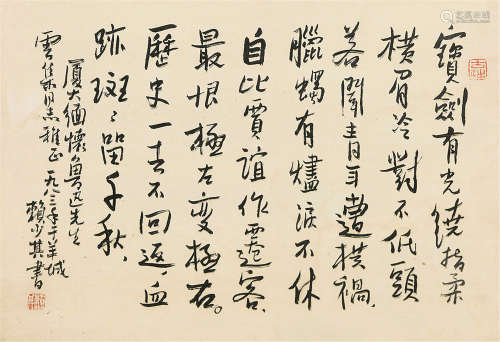 寶劍有光繞指柔
橫眉冷對不低頭
若聞青耳遭橫禍
臘燭有燼淚不休
自比賈誼作遷客
最恨極左變極右。
歷史一去不回返,血
跡斑斑留千秋,
廈大緬懷魯迅先生
雲集同志雅正 一九八三年于羊城
賴少其書